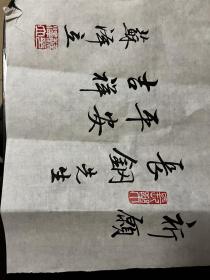 祈願
長 先生
平安
吉祥
蘇澤立